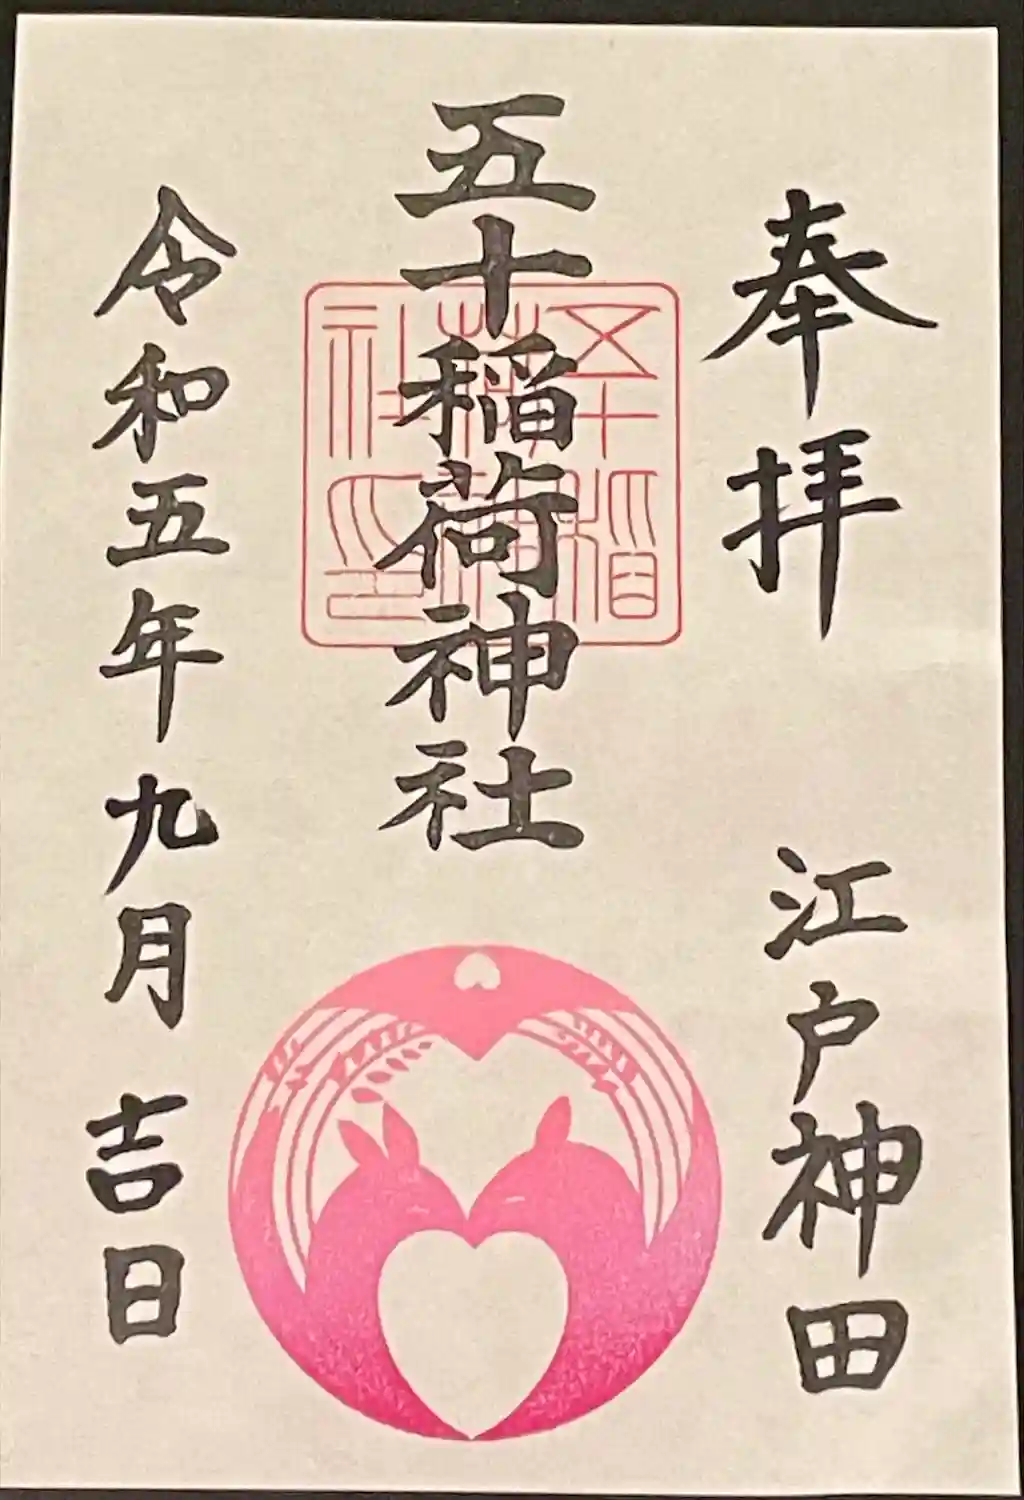 奉拝
江戸神田
五十稲荷神社
五十稲
荷神
社印
令和五年九月吉日